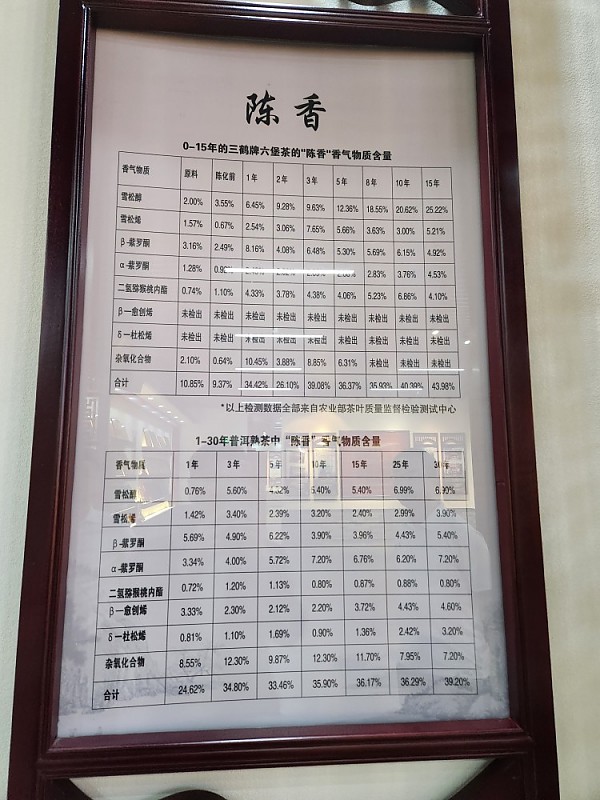 陈香
0-15年的三鹤牌六堡茶的"陈香"香气物质含量
香气物质 原料 陈化前 1年 2年 3年 5年 8年 10年 15年
雪松醇 2.00% 3.55% 6.45% 9.28% 9.63% 12.36% 18.55% 20.62% 25.22%
雪松烯 1.57% 0.67% 2.54% 3.06% 7.65% 5.66% 3.63% 3.00% 5.21%
β-紫罗酮 3.16% 2.49% 8.16% 4.08% 6.48% 5.30% 5.69% 6.15% 4.92%
α-紫罗酮 1.28% 2.83% 3.76% 4.53%
二氢猕猴桃内酯 0.74% 1.10% 4.33% 3.78% 4.38% 4.06% 5.23% 6.86% 4.10%
β一愈创烯 未检出 未检出 未检出 未检出 未检出 未检出 未检出 未检出 未检出
δ一杜松烯 未检出 未检出 未检出 未检出 未检出 未检出 未检出 未检出 未检出
杂氧化合物 2.10% 0.64% 10.45% 3.88% 8.85% 6.31% 未检出 未检出 未检出
合计 10.85% 9.37% 34.42% 26.10% 39.08% 36.37% 35.93% 40.39% 43.98%
*以上检测数据全部来自农业部茶叶质量监督检验测试中心
1-30年普洱熟茶中"陈香"香气物质含量
香气物质 1年 3年 5年 10年 15年 25年 30年
雪松醇 0.76% 5.60% 5.40% 5.40% 6.99% 6.90%
雪松烯 1.42% 3.40% 2.39% 3.20% 2.40% 2.99% 3.90%
β-紫罗酮 5.69% 4.90% 6.22% 3.90% 3.96% 4.43% 5.40%
α-紫罗酮 3.34% 4.00% 5.72% 7.20% 6.76% 6.20% 7.20%
二氢猕猴桃内酯 0.72% 1.20% 1.13% 0.80% 0.87% 0.88% 0.80%
β一愈创烯 3.33% 2.30% 2.12% 2.20% 3.72% 4.43% 4.60%
δ一杜松烯 0.81% 1.10% 1.69% 0.90% 1.36% 2.42% 3.20%
杂氧化合物 8.55% 12.30% 9.87% 12.30% 11.70% 7.95% 7.20%
合计 24.62% 34.80% 33.46% 35.90% 36.17% 36.29% 39.20%